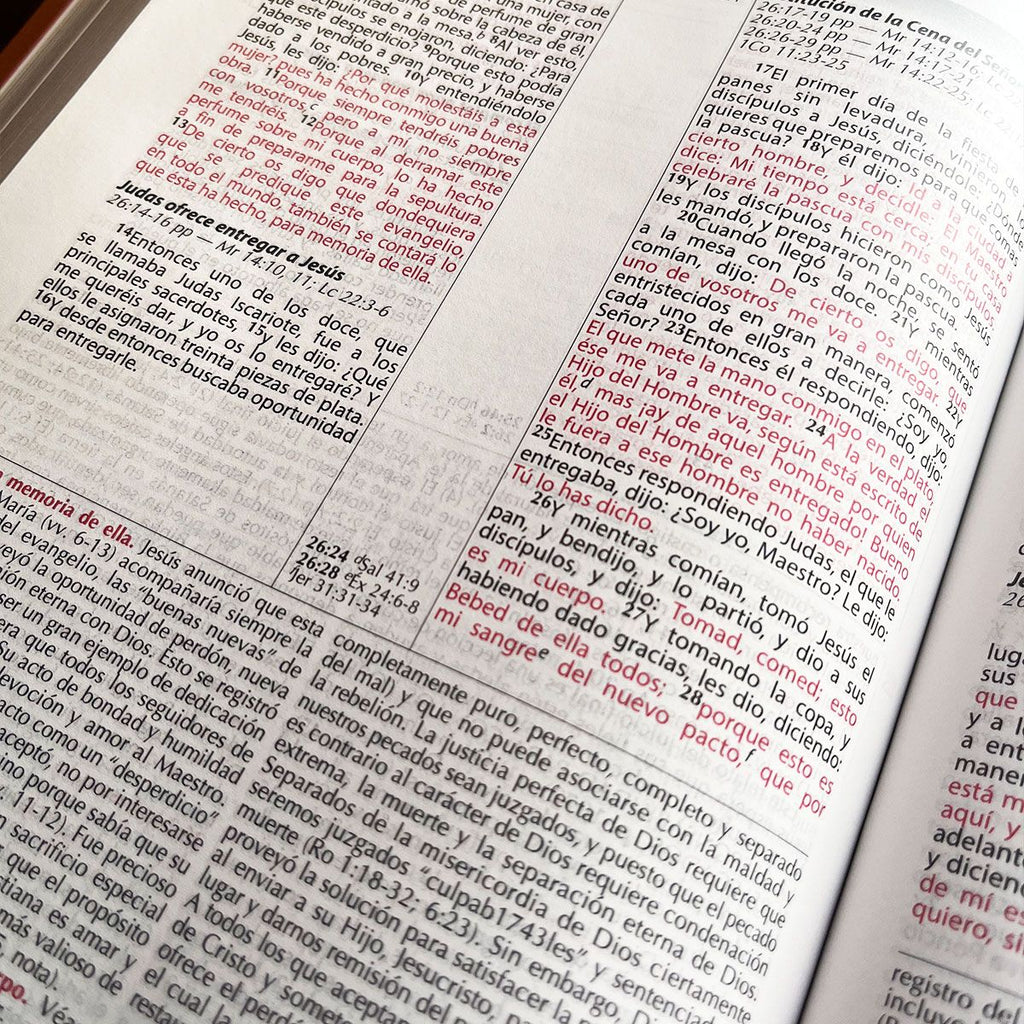 en casa de
una mujer, con
de perfume de gran
sobre la cabeza de él,
a la mesa.b 8Al ver esto,
se enojaron, diciendo: ¿Para
que este desperdicio? 9Porque esto podía
haberse vendido a gran precio, y haberse
dado a los pobres. 10Y entendiéndolo
Jesús, les dijo: ¿Por qué molestáis a esta
mujer? pues ha hecho conmigo una buena
obra. 11Porque siempre tendréis pobres
con vosotros,c pero a mí no siempre
me tendréis. 12Porque al derramar este
perfume sobre mi cuerpo, lo ha hecho
a fin de prepararme para la sepultura.
13De cierto os digo que dondequiera
que se predique este evangelio,
en todo el mundo, también se contará lo
que ésta ha hecho, para memoria de ella.
Judas ofrece entregar a Jesús
26:14-16 pp — Mr 14:10, 11; Lc 22:3-6
14Entonces uno de los doce, que
se llamaba Judas Iscariote, fue a los
principales sacerdotes, 15y les dijo: ¿Qué
me queréis dar, y yo os lo entregaré? Y
ellos le asignaron treinta piezas de plata.
16Y desde entonces buscaba oportunidad
para entregarle.
26:24 dSal 41:9
26:28 eEx 24:6-8
fJer 31:31-34
de la Cena del Señor
26:17-19 pp — Mr 14:12-16; Lc
26:20-24 pp — Mr 14:17-21
26:26-29 pp — Mr 14:22-25; Lc
1Co 11:23-25
17El primer día de la fiesta de
panes sin levadura, vinieron
discípulos a Jesús, diciéndole: ¿Dónde
quieres que preparemos para que comas
la pascua? 18Y él dijo: Id a la ciudad a
cierto hombre, y decidle: El Maestro
dice: Mi tiempo está cerca; en tu casa
celebraré la pascua con mis discípulos.
19Y los discípulos hicieron como Jesús
les mandó, y prepararon la pascua.
20Cuando llegó la noche, se sentó
a la mesa con los doce. 21Y mientras
comían, dijo: De cierto os digo, que
uno de vosotros me va a entregar. 22Y
entristecidos en gran manera, comenzó
cada uno de ellos a decirle: ¿Soy yo,
Señor? 23Entonces él respondiendo, dijo:
El que mete la mano conmigo en el plato,
ése me va a entregar. 24A la verdad el
Hijo del Hombre va, según está escrito de
él,d mas ¡ay de aquel hombre por quien
el Hijo del Hombre es entregado! Bueno
le fuera a ese hombre no haber nacido.
25Entonces respondiendo Judas, el que le
entregaba, dijo: ¿Soy yo, Maestro? Le dijo:
Tú lo has dicho.
26Y mientras comían, tomó Jesús el
pan, y bendijo, y lo partió, y dio a sus
discípulos, y dijo: Tomad, comed; esto
es mi cuerpo. 27Y tomando la copa, y
habiendo dado gracias, les dio, diciendo:
Bebed de ella todos; 28porque esto es
mi sangree del nuevo pacto,f que por
memoria de ella. Jesús anunció que esta
María (vv. 6-13) acompañaría siempre la
del evangelio, las "buenas nuevas" de
la oportunidad de perdón, nueva
eterna con Dios. Esto se registró
ser un gran ejemplo de dedicación
que todos los seguidores de
Su acto de bondad y humildad
devoción y amor al Maestro.
acto como un "desperdicio"
aceptó, no por interesarse
porque sabía que su
11-12). Fue precioso
sacrificio especial
que el propósito
es amar y
más valioso de
nota).
completamente puro, perfecto, completo y separado
del mal) y que no puede asociarse con la maldad y
la rebelión. La justicia perfecta de Dios requiere que
nuestros pecados sean juzgados, y puesto que el pecado
es contrario al carácter de Dios requiere condenación
extrema, la muerte y la separación eterna de Dios.
Separados de la misericordia de Dios ciertamente
seremos juzgados "culpab1743les" y sentenciad
muerte (Ro 1:18-32; 6:23). Sin embargo, D
proveyó la solución para satisfacer la
al enviar a su Hijo, Jesucristo,
lugar y darnos remisión del
A todos los que aceptan
de Cristo y somet
ofrece el perd
el cual l
de resta
lug
sus
que
y a
a ent
maner
está m
aquí, y
adelant
y dicien
de mi
quiero, si
registro del
incluye